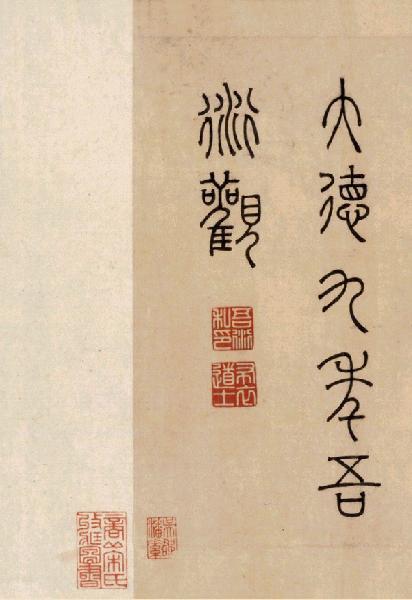 大德九年吾
衍觀
吾衍私印
布衣道士